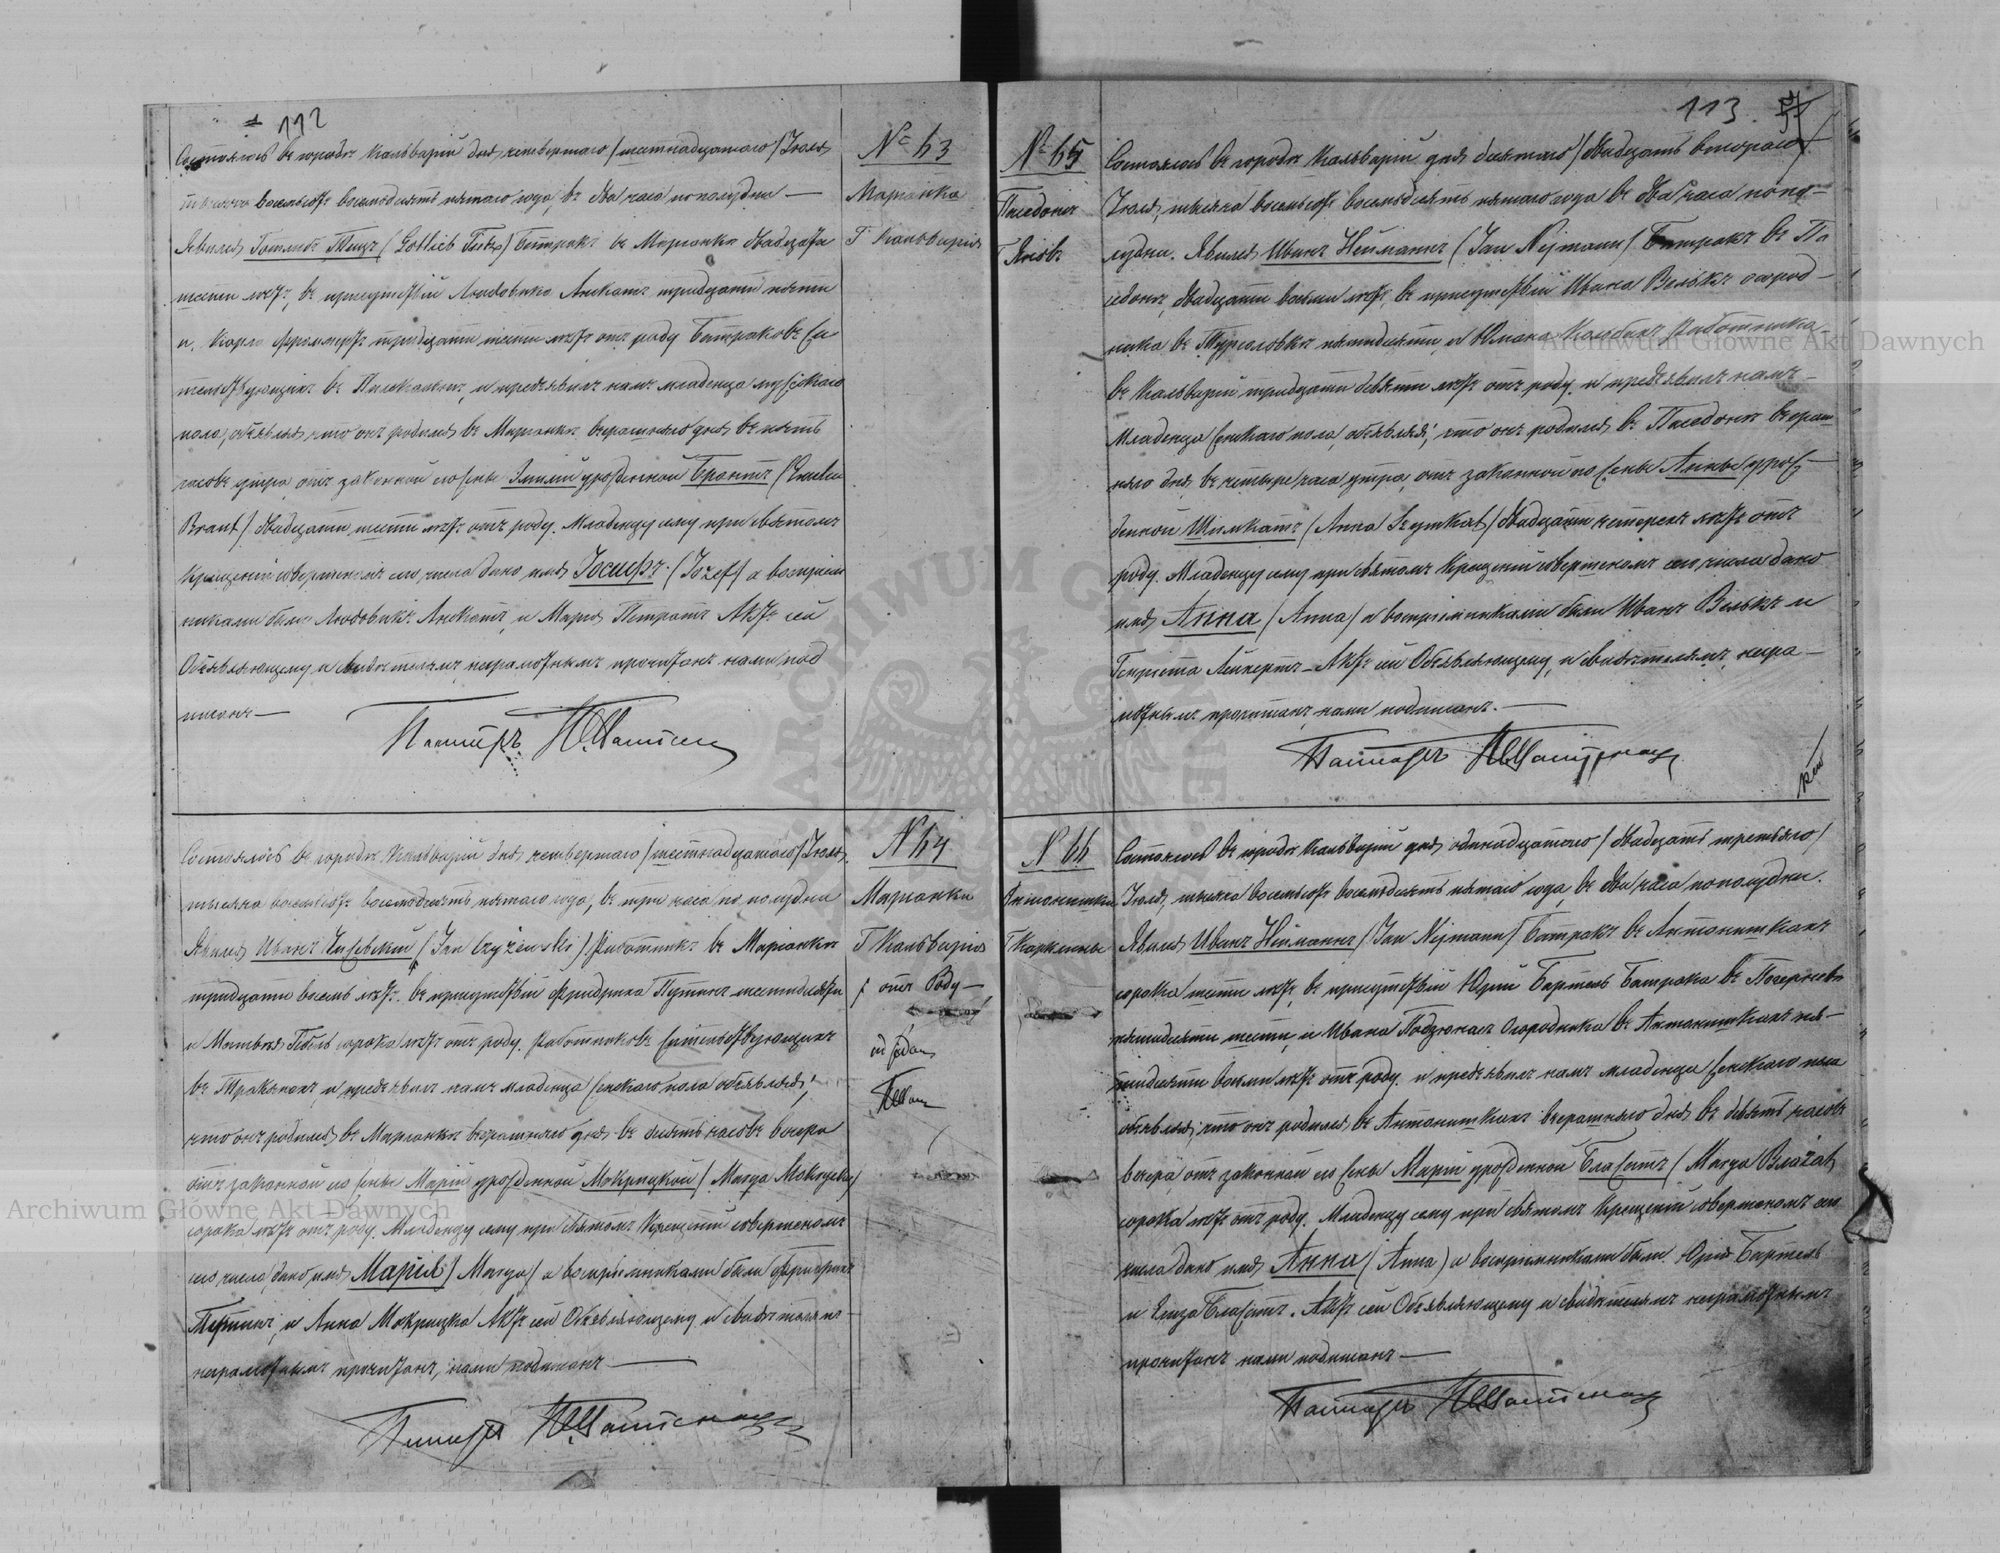 112
№ 63
Марiанка
Г. Кальварiя
Состоялось въ городѣ Кальварiи дня четвертаго / шестнадцатаго / Iюля
тысяча восемьсотъ восемьдесятъ пятаго года, въ два часа пополудни —
Явился Готлибъ Тицъ (Gotlieb Titz) батракъ въ Марiанкѣ двадцати
шести лѣтъ, въ присутствiи Людовика
и Карла тридцати шести лѣтъ отъ роду батраковъ жи
тельствующихъ въ и предъявилъ намъ младенца мужскаго
пола, объявляя что онъ родился въ Марiанкѣ вчерашняго дня въ пять
часовъ утра отъ законной его жены Эмилiи урожденной Брантъ (Emilia
Brant) двадцати шести лѣтъ отъ роду. Младенцу сему при святомъ
крещенiи совершенномъ сего числа дано имя Iосифъ (Jozef) а воспрiем
никами были Людовикъ и Марiя Актъ сей
Объявляющему и свидѣтелямъ неграмотнымъ прочитанъ нами под
писанъ —
Пасторъ
№ 64
Марiанка
Г. Кальварiя
отъ роду —
Состоялось въ городѣ Кальварiи дня четвертаго / шестнадцатаго / Iюля
тысяча восемьсотъ восемьдесятъ пятаго года, въ три часа по полудни
Явился Иванъ Чижевскiй (Jan Czyżewski) работникъ въ Марiанкѣ
тридцати восемь лѣтъ въ присутствiи Фридриха шестидесяти
и сорока лѣтъ отъ роду работниковъ жительствующихъ
въ и предъявилъ намъ младенца женскаго пола объявляя,
что онъ родился въ Марiанкѣ вчерашняго дня въ десять часовъ вечера
отъ законной его жены Марiи урожденной Мокрицкой (Marya Mokrycka)
сорока лѣтъ отъ роду. Младенцу сему при святомъ крещенiи совершеномъ
сего числа, дано имя Марiя (Marya) а воспрiемниками были Фридрихъ
и Анна Мокрицка Актъ сей Объявляющему и свидѣтелямъ
неграмотнымъ прочитанъ, нами подписанъ —
Пасторъ
113
№ 65
Г. Яновъ
Состоялось въ городѣ Кальварiи дня десятаго / двадцать втораго /
Iюля, тысяча восемьсотъ восемьдесятъ пятаго года въ два часа попо
лудни. Явился Иванъ Нейманнъ (Jan Nejmann) батракъ въ Па
седонѣ, двадцати восьми лѣтъ, въ присутствiи Ивана Велькъ огород-
ника въ пятидесяти и работника
въ Кальварiи тридцати девяти лѣтъ отъ роду и предъявилъ намъ
младенца женскаго пола, объявляя, что онъ родился въ Паседонѣ вчераш
няго дня въ четыре часа утра отъ законной его жены Анны урож
денной Шимкатъ (Anna Szymkat) двадцати четырехъ лѣтъ отъ
роду. Младенцу сему при святомъ крещенiи совершеномъ сего числа дано
имя Анна (Anna) а воспрiемниками были Иванъ Велькъ и
Генрiета Актъ сей Объявляющему, и свидѣтелямъ негра-
мотнымъ прочитанъ, нами подписанъ. —
Пасторъ
№ 66
Антонишки
Состоялось въ городѣ Кальварiи дня одинадцатаго / двадцать третьяго /
Iюля, тысяча восемьсотъ восемьдесятъ пятаго года, въ два часа пополудни.
Явился Иванъ Нейманнъ (Jan Nejmann) батракъ въ Антонишкахъ
сорока шести лѣтъ въ присутствiи Юрiй Бартель батрака въ
пятидесяти шести, и Ивана огородника въ Антонишкахъ пя-
тидесяти восьми лѣтъ отъ роду и предъявилъ намъ младенца женскаго пола
объявляя, что онъ родился въ Антонишкахъ вчерашняго дня въ девять часовъ
вечера отъ законной его жены Марiи урожденной Блажатъ (Marya Blażat)
сорока лѣтъ отъ роду. Младенцу сему при святомъ крещенiи совершеномъ сего
числа дано имя Анна (Anna) а воспрiемниками были. Юрiй Бартель
и Елиза Блажатъ. Актъ сей Объявляющему и свидѣтелямъ неграмотнымъ
прочитанъ нами подписанъ —
Пасторъ
Archiwum Główne Akt Dawnych
Archiwum Główne Akt Dawnych